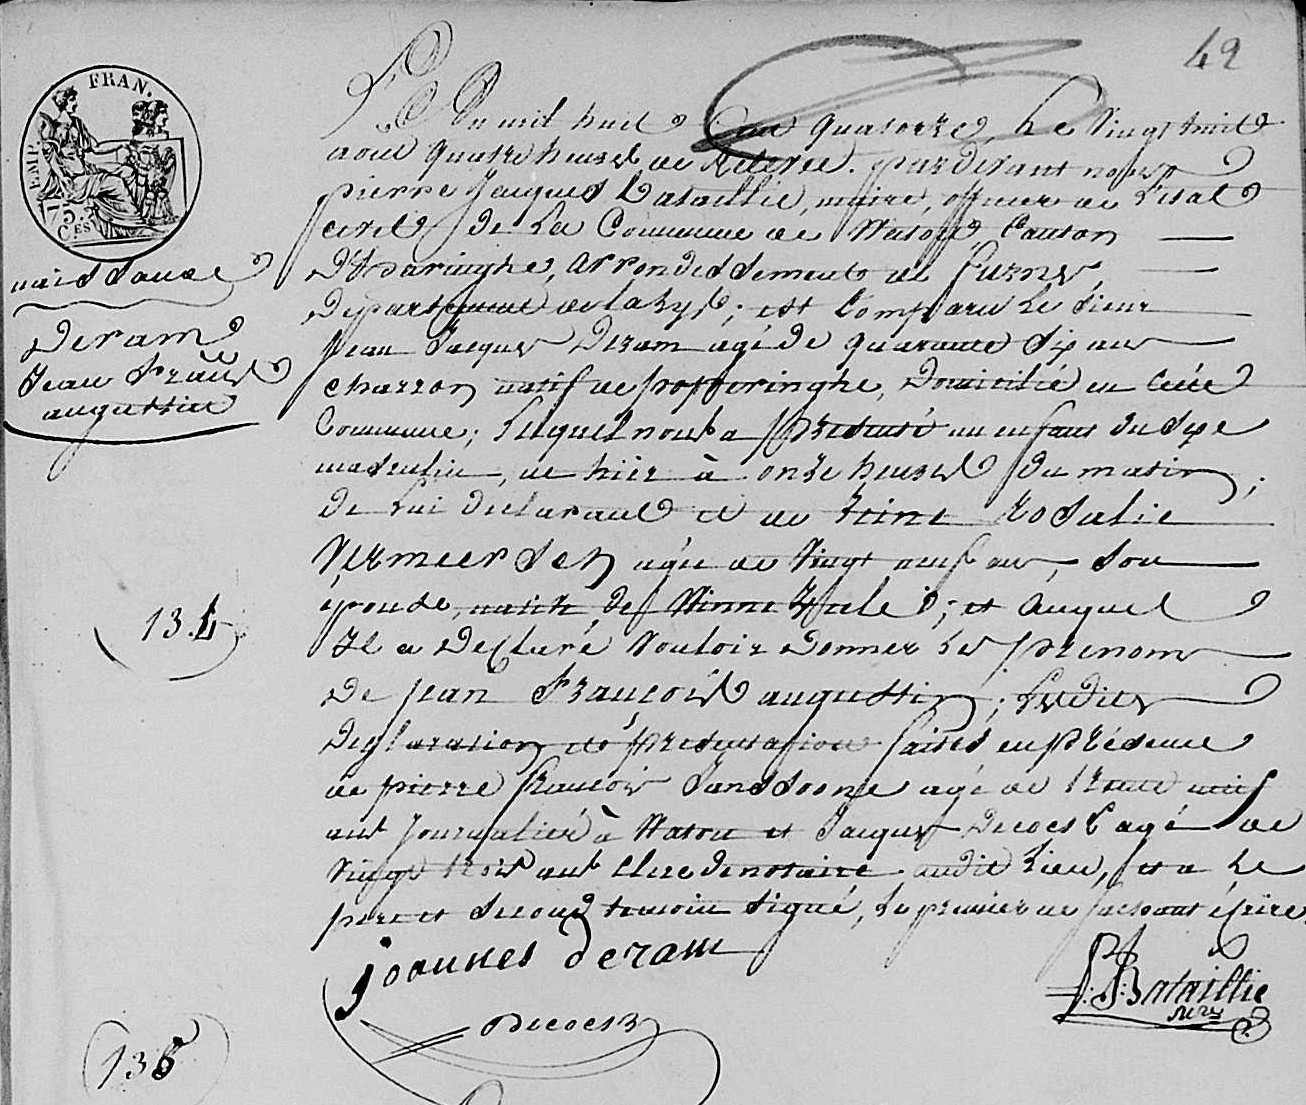 42
FRAN.
EMP.
75.
Ces
naissance
Deram
Jean Franç.
augustin
13.4
135
L'an mil huit Cent quatorze, Le Vingt huit
aout quatre heures de Relevée. pardevant nous
pierre Jacques Bataillie, maire, officier de L'etat
civil de La Commune de Watou, Canton
D'haringhe, arrondissement de furnes,
Departement de la Lys; est Comparu Le sieur
Jean Jacques Deram agé de quarante Six ans
charron natif de popperinghe, Domicilié en Cette
Commune; Lequel nous a presenté un enfant du Sexe
masculin, né hier à onze heures du matin;
De lui declarant et de Rosalie
Vermeersch agée de Vingt neuf ans, Son
épouse, native de Winnezeele; et auquel
Il a Declaré Vouloir Donner Les prenoms
De jean François augustin; Lesdites
Declaration et presentation faites en présence
de pierre François Janssoone agé de trente neuf
ans Journalier à Watou et Jacques Decock agé de
Vingt trois ans Clerc de notaire audit Lieu, et a Le
pere et Second temoin Signé, Le premier ne sachant écrire
joannes deram
Decock
P. J. Bataillie